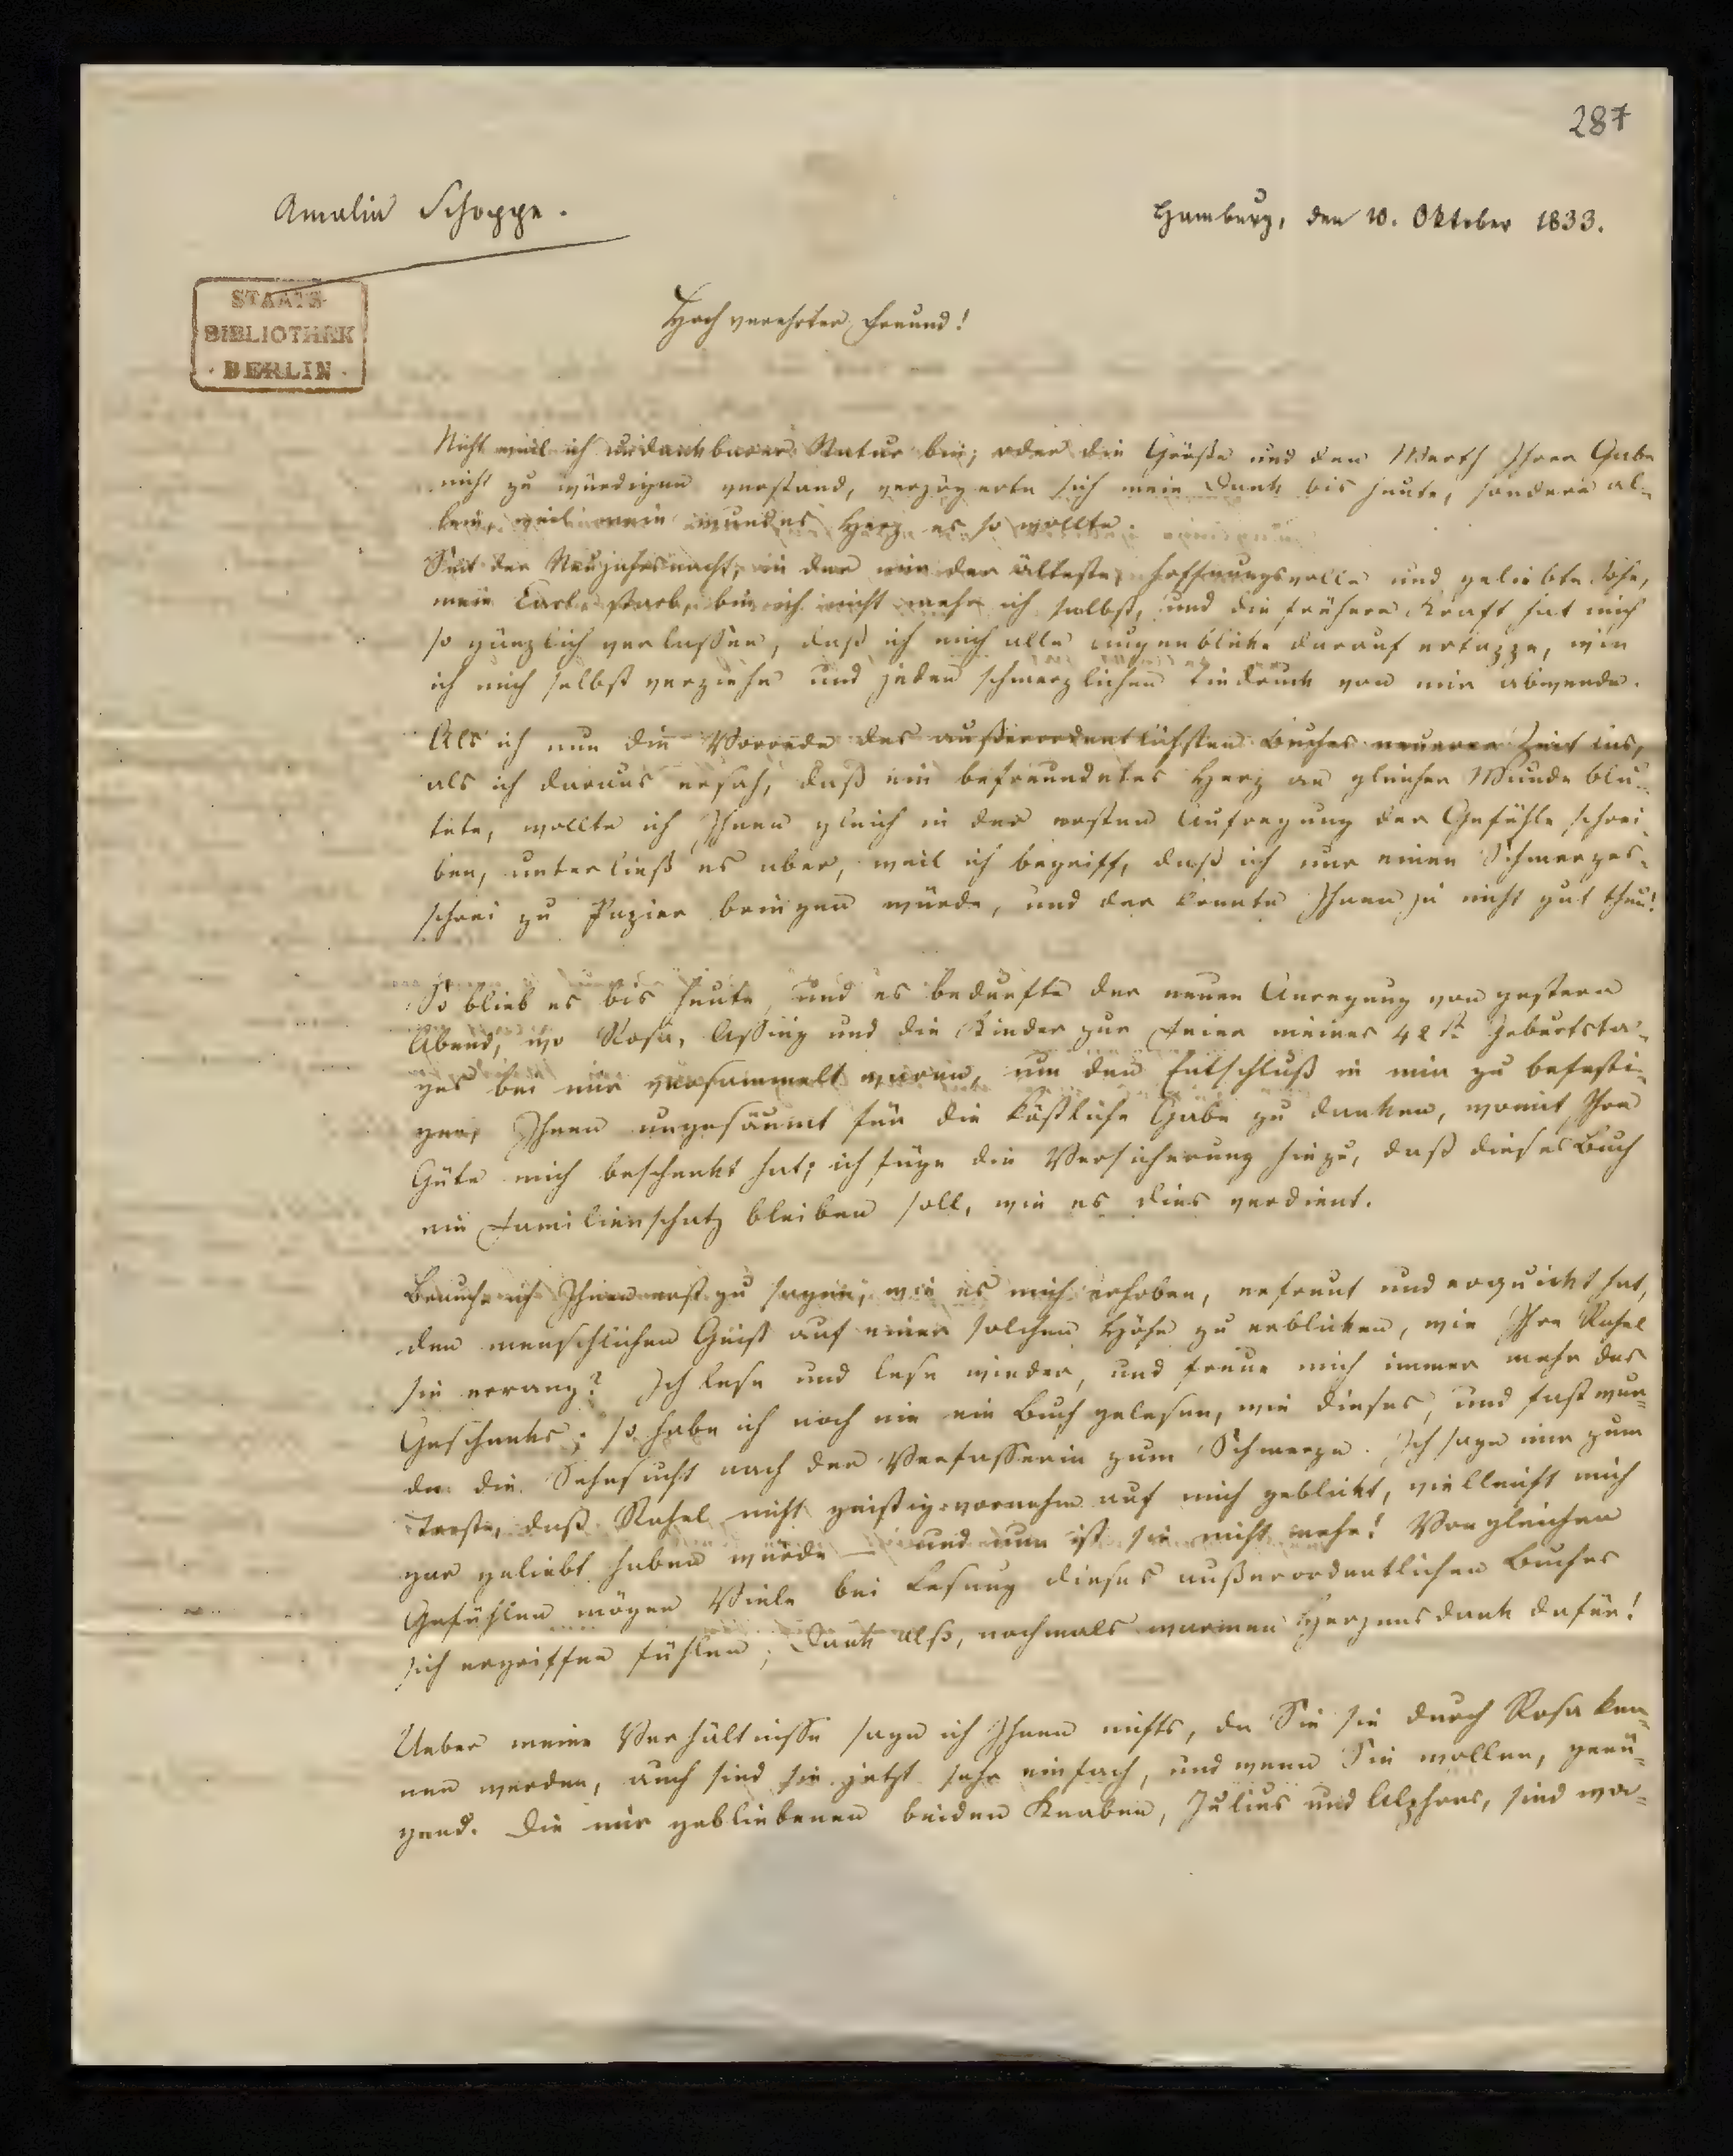 287
Amalia Schoppe.
Hamburg, den 10. Oktober 1833.
STAATS-
BIBLIOTHEK
· BERLIN ·
Hochverehrter Freund!
Nicht weil ich undankbarer Natur bin, oder die Größe und den Werth Ihrer Gabe
nicht zu würdigen verstand, verzögerte sich mein Dank bis heute, sondern al-
lein, weil mein wundes Herz es so wollte.
Seit der Neujahrsnacht, in der mir der älteste, hoffnungsvolle und geliebte Sohn,
mein Carl, starb, bin ich nicht mehr ich selbst, und die frühere Kraft hat mich
so gänzlich verlassen, daß ich mich alle Augenblicke darauf ertappe, wie
ich mich selbst verziehe und jeden schmerzlichen Eindruck von mir abwende.
Als ich nun die Vorrede des außerordentlichsten Buches neuerer Zeit las,
als ich daraus ersah, daß ein befreundetes Herz an gleicher Wunde blu-
tete, wollte ich Ihnen gleich in der ersten Aufregung der Gefühle schrei-
ben, unterließ es aber, weil ich begriff, daß ich nur einen Schmerzes-
schrei zu Papier bringen würde, und der konnte Ihnen ja nicht gut thun!
So blieb es bis heute, und es bedurfte der neuen Anregung von gestern
Abend, wo Rosa, Assing und die Kinder zur Feier meines 42st Geburtsta-
ges bei mir versammelt waren, um den Entschluß in mir zu befesti-
gen, Ihnen ungesäumt für die köstliche Gabe zu danken, womit Ihre
Güte mich beschenkt hat; ich füge die Versicherung hinzu, daß dieses Buch
ein Familienschatz bleiben soll, wie es dies verdient.
Brauche ich Ihnen erst zu sagen, wie es mich erhoben, erfreut und erquickt hat,
den menschlichen Geist auf einer solchen Höhe zu erblicken, wie Ihre Rahel
sie errang? Ich lese und lese wieder, und freue mich immer mehr des
Geschenks; so habe ich noch nie ein Buch gelesen, wie dieses, und fast wur-
de die Sehnsucht nach der Verfasserin zum Schmerze. Ich sage mir zum
Troste, daß Rahel nicht geistig-vornehm auf mich geblickt, vielleicht mich
gar geliebt haben würde — und nun ist sie nicht mehr! Von gleichen
Gefühlen mögen Viele bei Lesung dieses außerordentlichen Buches
sich ergriffen fühlen; Dank also, nochmals warmen Herzensdank dafür!
Ueber meine Verhältnisse sage ich Ihnen nichts, da Sie sie durch Rosa ken-
nen werden, auch sind sie jetzt sehr einfach, und wenn Sie wollen, genü-
gend. Die mir gebliebenen beiden Knaben, Julius und Alphons, sind wa-